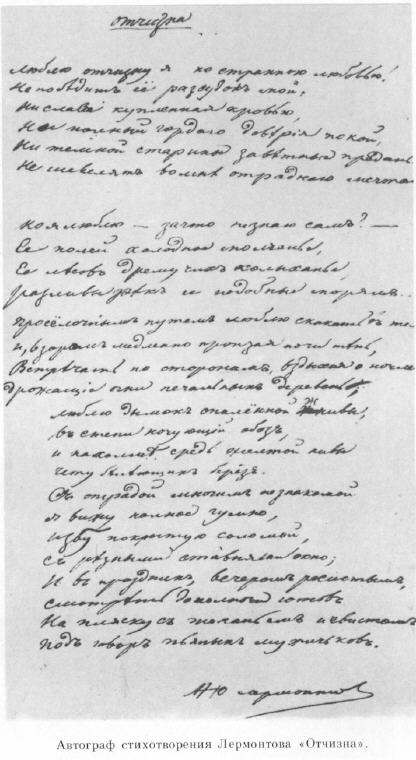 Отчизна
Люблю отчизну я но странною любовью!
Не победитъ её разсудокъ мой;
Ни слава купленная кровью,
Ни полный гордаго довѣрія покой,
Ни темной старины завѣтныя
Не шевелятъ во мнѣ отраднаго мечта
Но я люблю — за что не знаю самъ? —
Ея полей холодное молчанье,
Ея лѣсовъ дремучихъ колыханье,
Разливы рѣкъ ея подобные морямъ...
Просёлочнымъ путемъ люблю скакать въ те
И, взоромъ медленно пронзая ночи тѣнь,
Встрѣчать по сторонамъ, вздыхая о ночле
Дрожащіе огни печальныхъ деревень;
Люблю дымокъ спалённой жнивы,
Въ степи кочующій обозъ,
И на холмѣ средь желтой нивы
Чету бѣлѣющихъ берёзъ.
Съ отрадой многимъ незнакомой
Я вижу полное гумно,
Избу покрытую соломой,
Съ рѣзными ставнями окно;
И въ праздникъ, вечеромъ росистымъ,
Смотрѣть до полночи готовъ
На пляску съ топаньемъ и свистомъ
Подъ говоръ пьяныхъ мужичковъ.
М Ю Лермонтов
Автограф стихотворения Лермонтова «Отчизна».